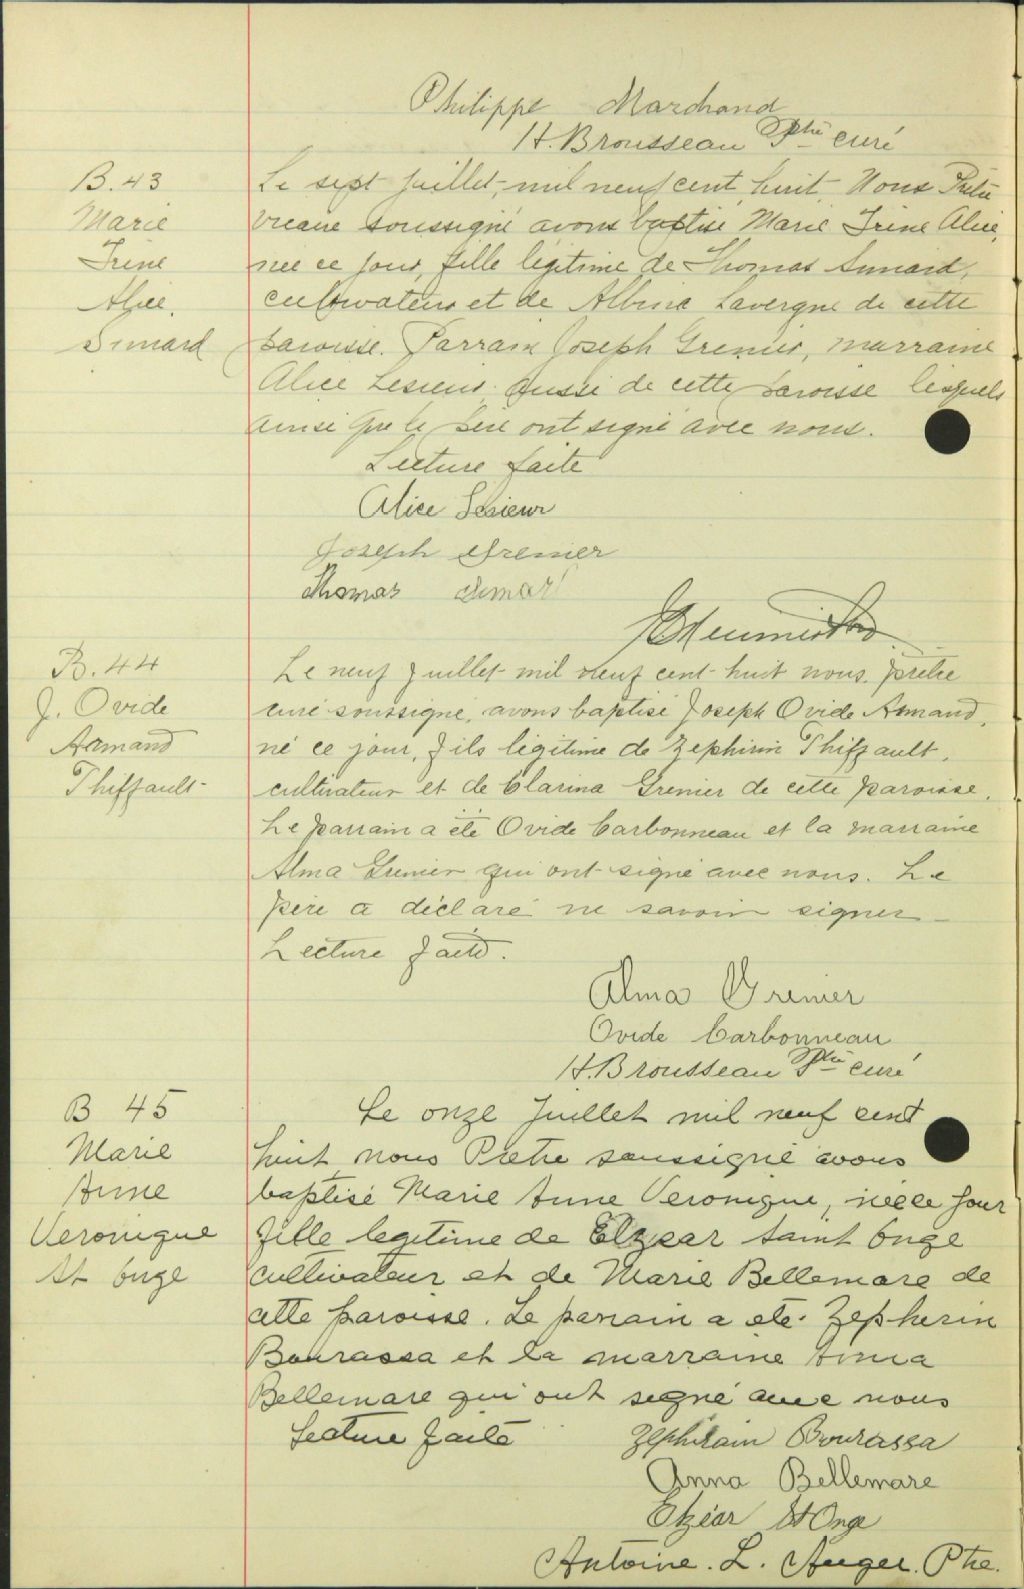 Philippe Marchand
H. Brousseau Ptre curé
B. 43
Marie
Irène
Alice.
Simard
Le sept juillet, mil neuf cent huit, Nous Prêtre
vicaire soussigné avons baptisé Marie Irène Alice,
née ce jour, fille légitime de Thomas Simard,
cultivateur et de Albina Lavergne de cette
paroisse. Parrain Joseph Grenier, marraine
Alice Lesieur aussi de cette paroisse lesquels
ainsi que le père ont signé avec nous.
Lecture faite
Alice Lesieur
Joseph Grenier
Thomas Simard
B. 44
J. Ovide
Armand
Thiffault
Le neuf juillet mil neuf cent huit nous, prêtre
curé soussigné, avons baptisé Joseph Ovide Armand,
né ce jour, fils légitime de Zephirin Thiffault,
cultivateur et de Clarina Grenier de cette paroisse.
Le parrain a été Ovide Carbonneau et la marraine
Alma Grenier qui ont signé avec nous. Le
père a déclaré ne savoir signer
Lecture faite.
Alma Grenier
Ovide Carbonneau
H. Brousseau Ptre curé
B 45
Marie
Anne
Veronique
St Onge
Le onze Juillet mil neuf cent
huit nous Prêtre soussigné avons
baptisé Marie Anne Veronique, née ce jour
fille legitime de Elzear Saint Onge
cultivateur et de Marie Bellemare de
cette paroisse. Le parrain a eté Zepherin
Bourassa et la marraine Anna
Bellemare qui ont signé avec nous
Lecture faite
Zéphirain Bourassa
Anna Bellemare
Elzéar St Onge
Antoine. L. Auger. Ptre.